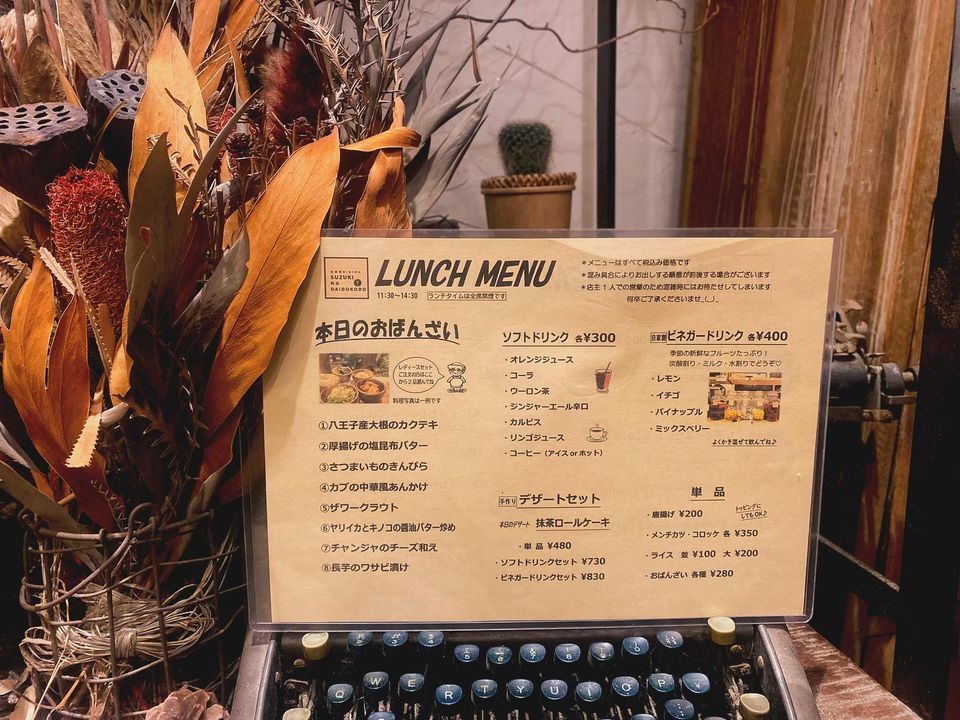 SUZUKI
no
DAIDOKORO
LUNCH MENU
11:30～14:30 ランチタイムは全席禁煙です
＊メニューはすべて税込み価格です
＊混み具合によりお出しする順番が前後する場合がございます
＊店主１人での営業のため混雑時にはお待たせしてしまいます
何卒ご了承くださいませ_(._.)_
本日のおばんざい
レディースセット
ご注文の方はここ
から２品選んでね
料理写真は一例です
①八王子産大根のカクテキ
②厚揚げの塩昆布バター
③さつまいものきんぴら
④カブの中華風あんかけ
⑤ザワークラウト
⑥ヤリイカとキノコの醤油バター炒め
⑦チャンジャのチーズ和え
⑧長芋のワサビ漬け
ソフトドリンク 各¥300
・オレンジジュース
・コーラ
・ウーロン茶
・ジンジャーエール辛口
・カルピス
・リンゴジュース
・コーヒー（アイス or ホット）
手作り デザートセット
本日のデザート 抹茶ロールケーキ
・単 品 ¥480
・ソフトドリンクセット ¥730
・ビネガードリンクセット ¥830
自家製 ビネガードリンク 各¥400
季節の新鮮なフルーツたっぷり！
炭酸割り・ミルク・水割りでどうぞ♡
・レモン
・イチゴ
・パイナップル
・ミックスベリー
よくかき混ぜて飲んでね♪
単 品
・唐揚げ ¥200
トッピングに
してもOK♪
・メンチカツ・コロッケ 各 ¥350
・ライス 並 ¥100 大 ¥200
・おばんざい 各種 ¥280
Q W E R T Y U I O P